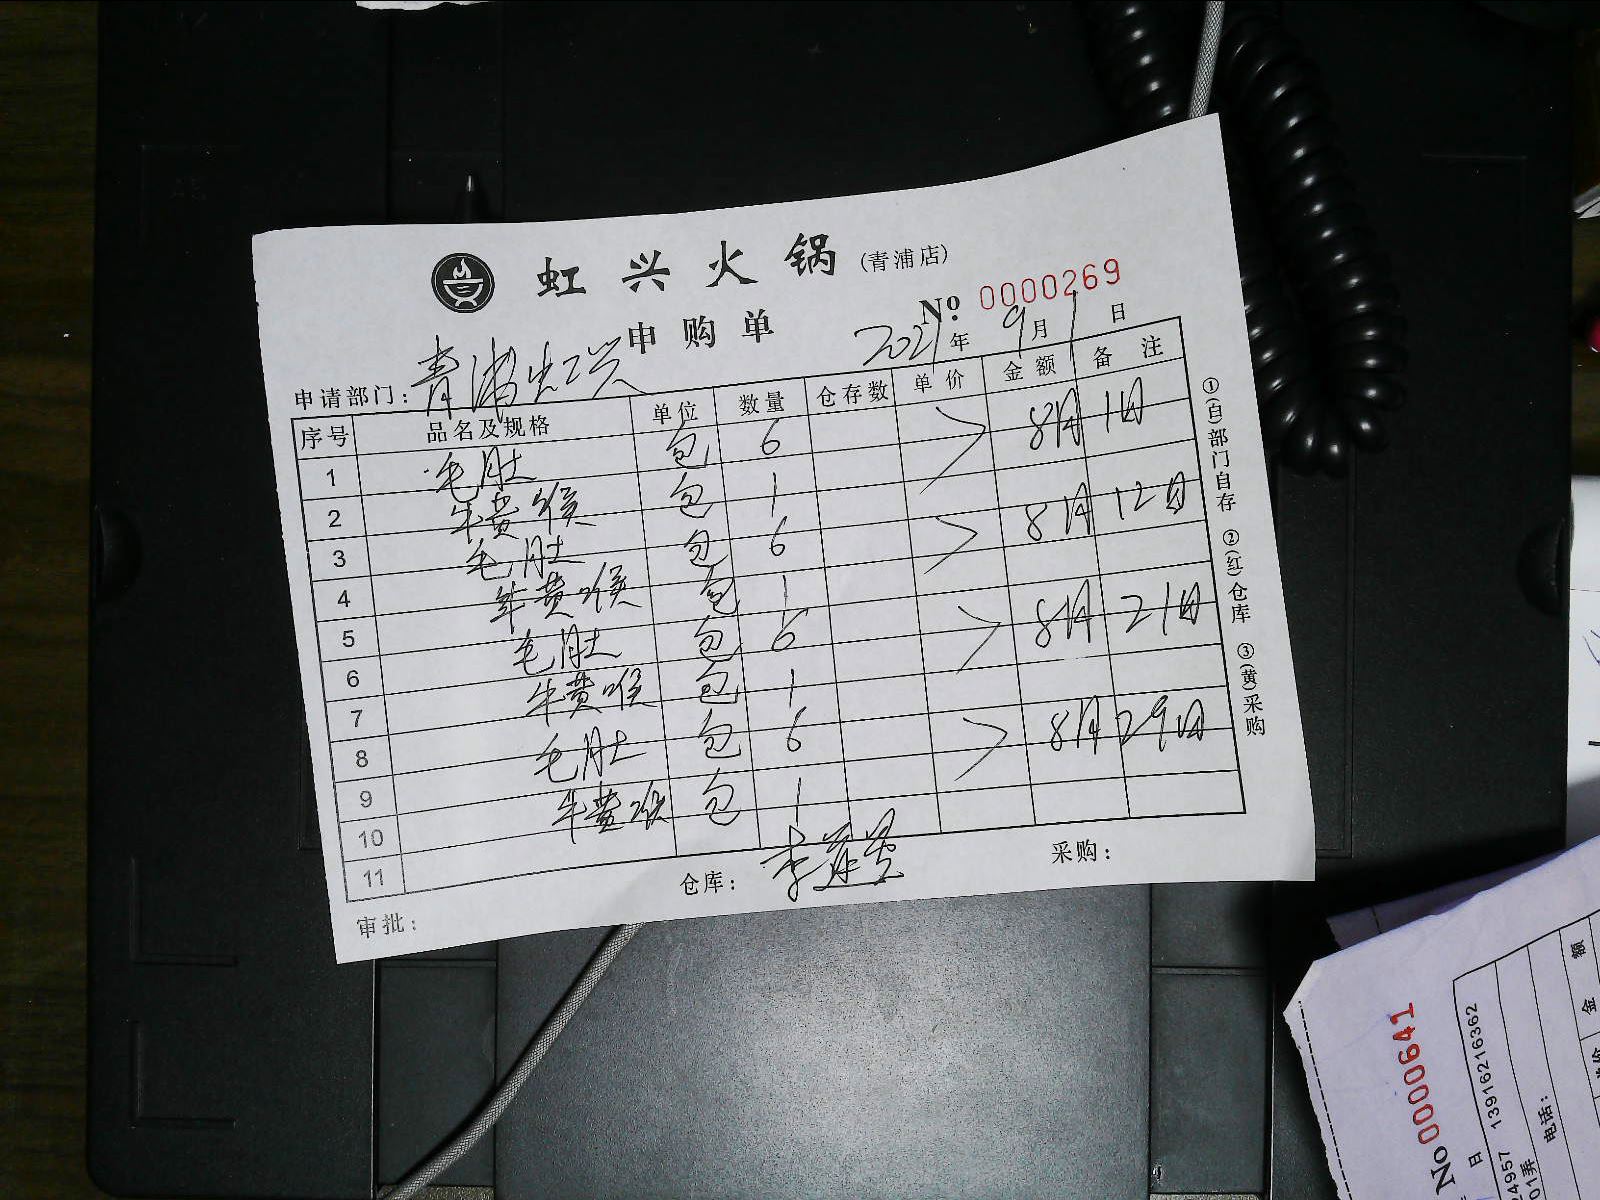 虹兴火锅(青浦店)
No: 0000269
申购单
2021年9月1日
申请部门:青浦虹兴
序号 品名及规格 单位 数量 仓存数 单价 金额 备注
1 毛肚 包 6 8月1日
2 牛黄喉 包 1
3 毛肚 包 6 8月12日
4 牛黄喉 包 1
5 毛肚 包 6 8月21日
6 牛黄喉 包 1
7 毛肚 包 6 8月29日
8 牛黄喉 包 1
9
10
11
审批: 仓库: 采购:
①(白)部门自存 ②(红)仓库 ③(黄)采购
No0000641
日
4957 13916216362
01弄
电话:
金额